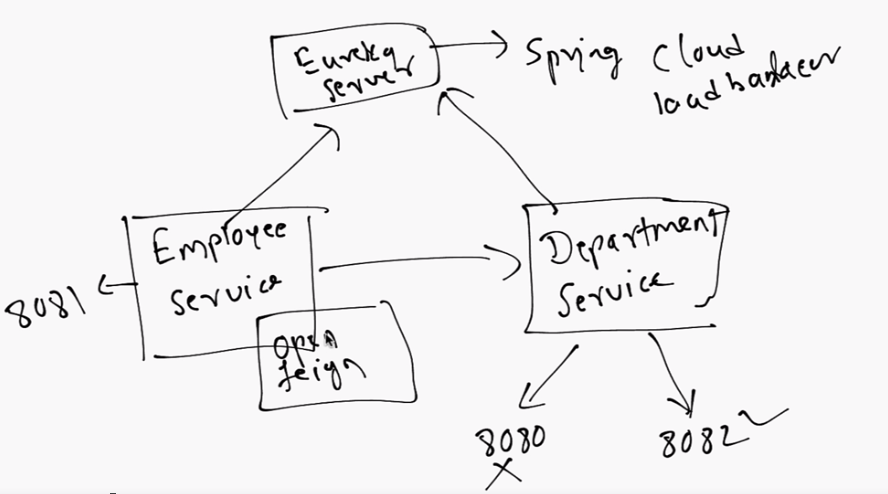 Eureka
Server
Spring Cloud
Employee
Service
8081
Open
feign
Department
Service
8080
8082